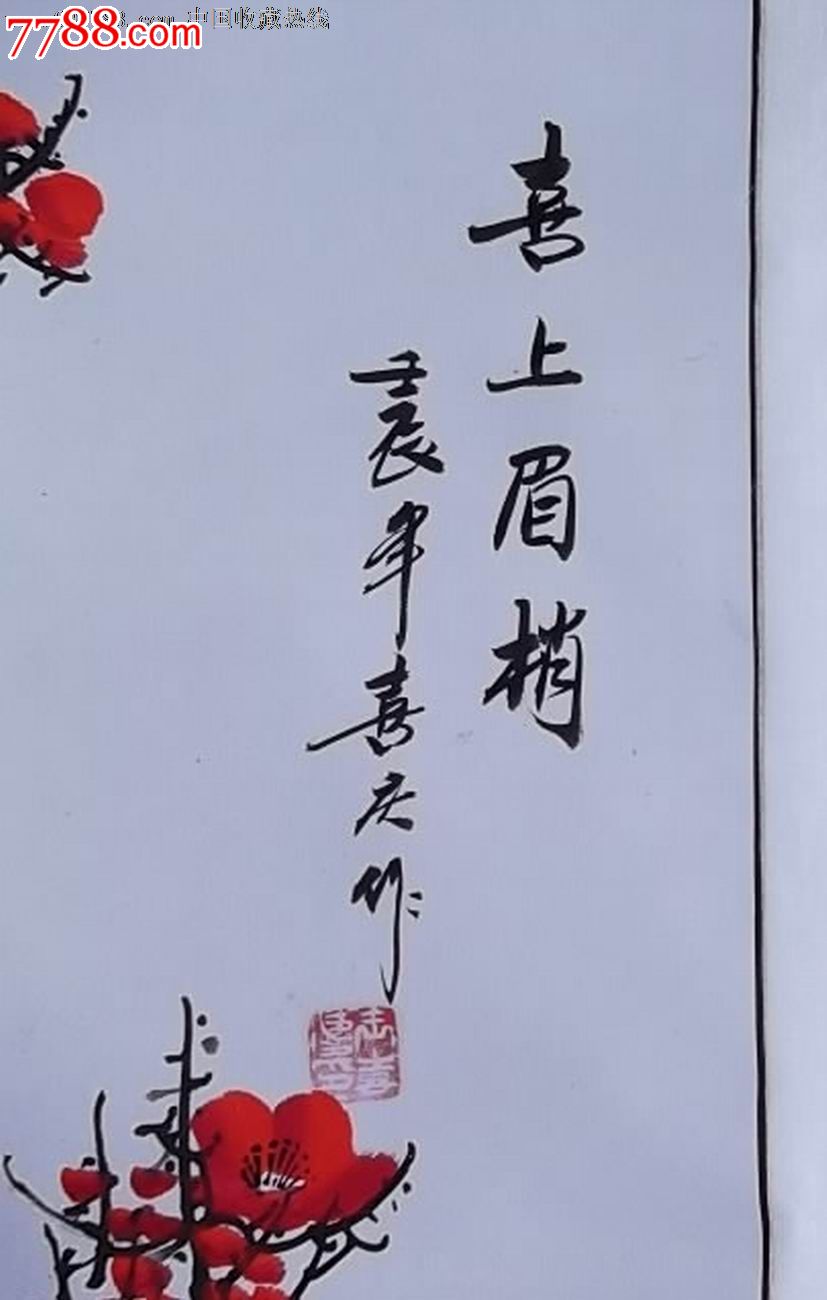 7788.com 中国收藏热线
喜上眉梢
壬辰年喜庆作